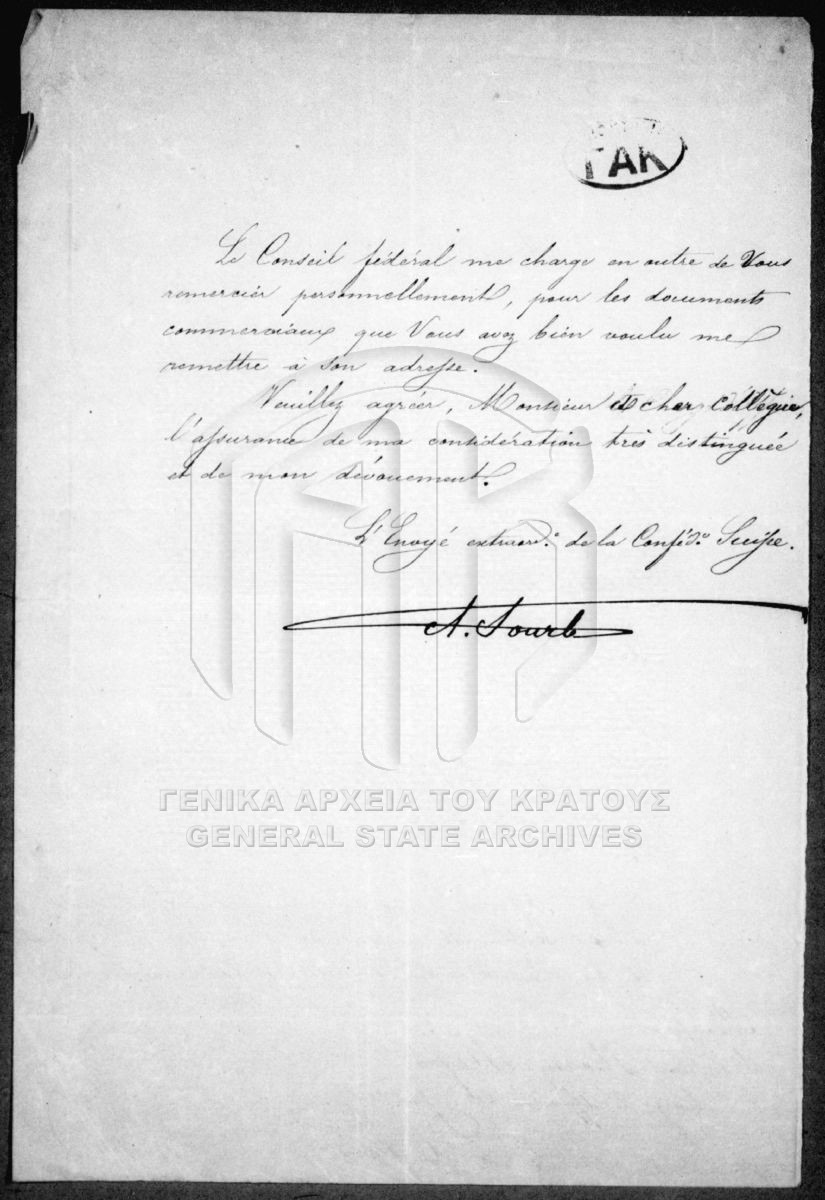 ΓΑΚ
Le Conseil fédéral me charge en outre de Vous
remercier personnellement, pour les documents
commerciaux que Vous avez bien voulu me
remettre à son adresse.
Veuillez agréer, Monsieur et cher collègue,
l'assurance de ma considération très distinguée
et de mon dévouement.
L'Envoyé extraord.e de la Conféd.n Suisse.
A.
ΓΕΝΙΚΑ ΑΡΧΕΙΑ ΤΟΥ ΚΡΑΤΟΥΣ
GENERAL STATE ARCHIVES